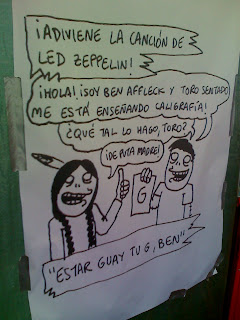 ¡ADIVIENE LA CANCIÓN DE
LED ZEPPELIN!
¡HOLA! ¡SOY BEN AFFLECK Y TORO SENTADO
ME ESTÁ ENSEÑANDO CALIGRAFÍA!
¿QUÉ TAL LO HAGO, TORO?
¡DE PUTA MADRE!
G
"ESTAR GUAY TU G, BEN"